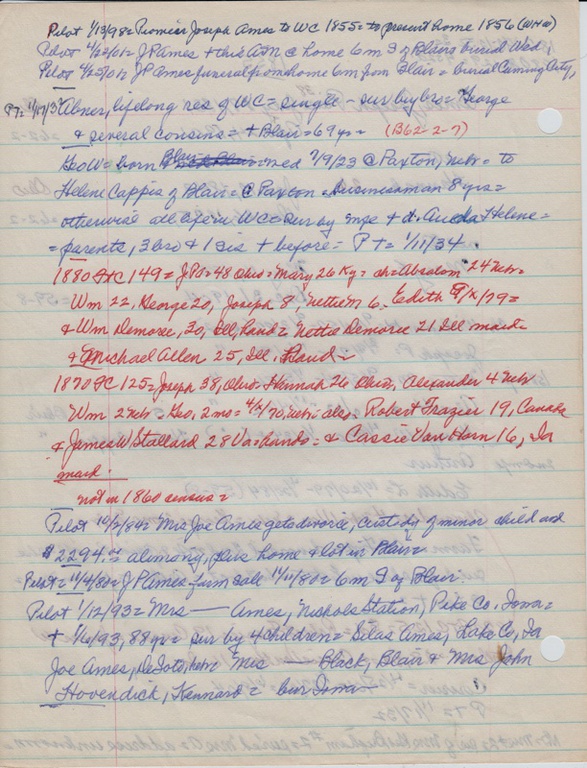 Pilot 1/13/98= Pioneer Joseph Ames to WC 1855= to present home 1856 (WHW)
Pilot 4/22/01= J P Ames + this AM @ home 6 m S of Blair= burial Wed,
Pilot 4/25/01= J P Ames funeral from home 6 m from Blair = burial Cuming City,
PT= 11/17/3 Abner, lifelong res of WC= single - sur by bro= George
& several cousins= + Blair= 69 yr= (B62-2-7)
Geo W= born Blair med 7/9/23 @ Paxton, Nebr= to
Helene Cappies of Blair= @ Paxton= businessman 8 yrs=
otherwise all life in WC= sur by wife + d. Helene=
= parents, 3 bro & 1 sis + before= PT= 1/11/34
1880 FC 149= J P A= 48 Ohio= Mary 26 Ky= ch= Absolom 24 Nebr=
Wm 22, George 20, Joseph 8 Nettie M 6= Edith 9/x/79=
& Wm Demaree, 30, Ill, hand= Nettie Demaree 21 Ill maid=
& Michael Allen 25, Ill, hand=
1870 FC 125= Joseph 38, Ohio= Hannah 26 Ohio, Alexander 4 Nebr
Wm 2 Nebr= Geo, 2 mo= 4/x/70, Nebr= also= Robert Frazier 19, Canada
& James W Stallard 28 Va= hands= & Cassie Van Horn 16, Ia
maid=
not in 1860 census=
Pilot 10/2/84= Mrs Joe Ames gets divorce, custody of minor child and
$2294. alimony, plus home & lot in Blair
Pilot= 11/4/80= J P Ames farm sale 11/11/80= 6 m S of Blair.
Pilot 1/12/93= Mrs — Ames, Nichols Station, Pike Co, Iowa=
+ 1/6/93, 88 yr= sur by 4 children= Silas Ames, Lake Co, Ia
Joe Ames, DeSoto, Nebr Mrs — Black, Blair & Mrs John
Hovendick, Kennard= bur Iowa